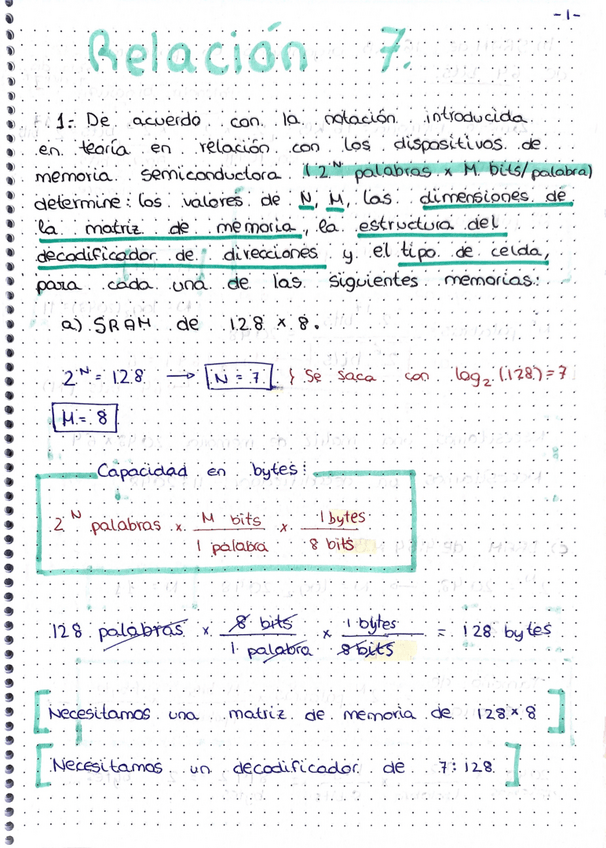 -1-
Relación 7.
1.- De acuerdo con la notación introducida
en teoría en relación con los dispositivos de
memoria semiconductora (2^N palabras x M bits/palabra)
determine: los valores de N, M, las dimensiones de
la matriz de memoria, la estructura del
decodificador de direcciones y el tipo de celda,
para cada una de las siguientes memorias:
a) SRAM de 128 x 8.
2^N = 128 → N = 7 } Se saca con log₂ (128) = 7
M = 8
Capacidad en bytes:
2^N palabras x M bits / 1 palabra x 1 bytes / 8 bits
128 palabras x 8 bits / 1 palabra x 1 bytes / 8 bits = 128 bytes
[Necesitamos una matriz de memoria de 128 x 8]
[Necesitamos un decodificador de 7:128]